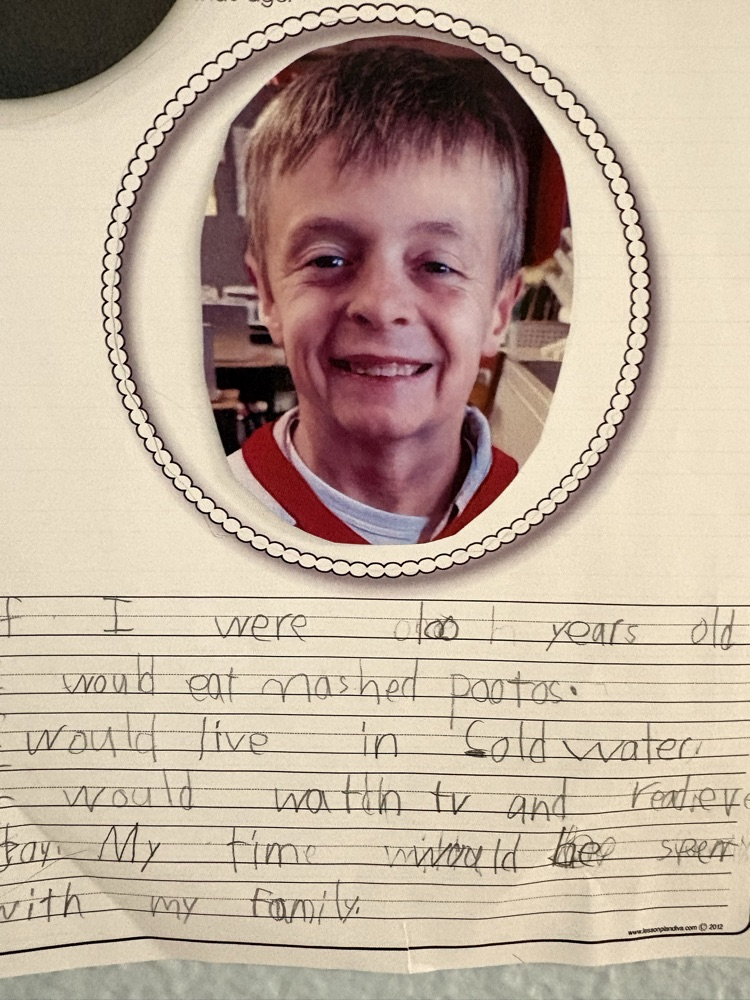 that age.
I were 100 years old
would eat mashed pootos.
would live in Coldwater.
would watch tv and
day. My time would be spent
with my family.
www.lessonplandiva.com © 2012